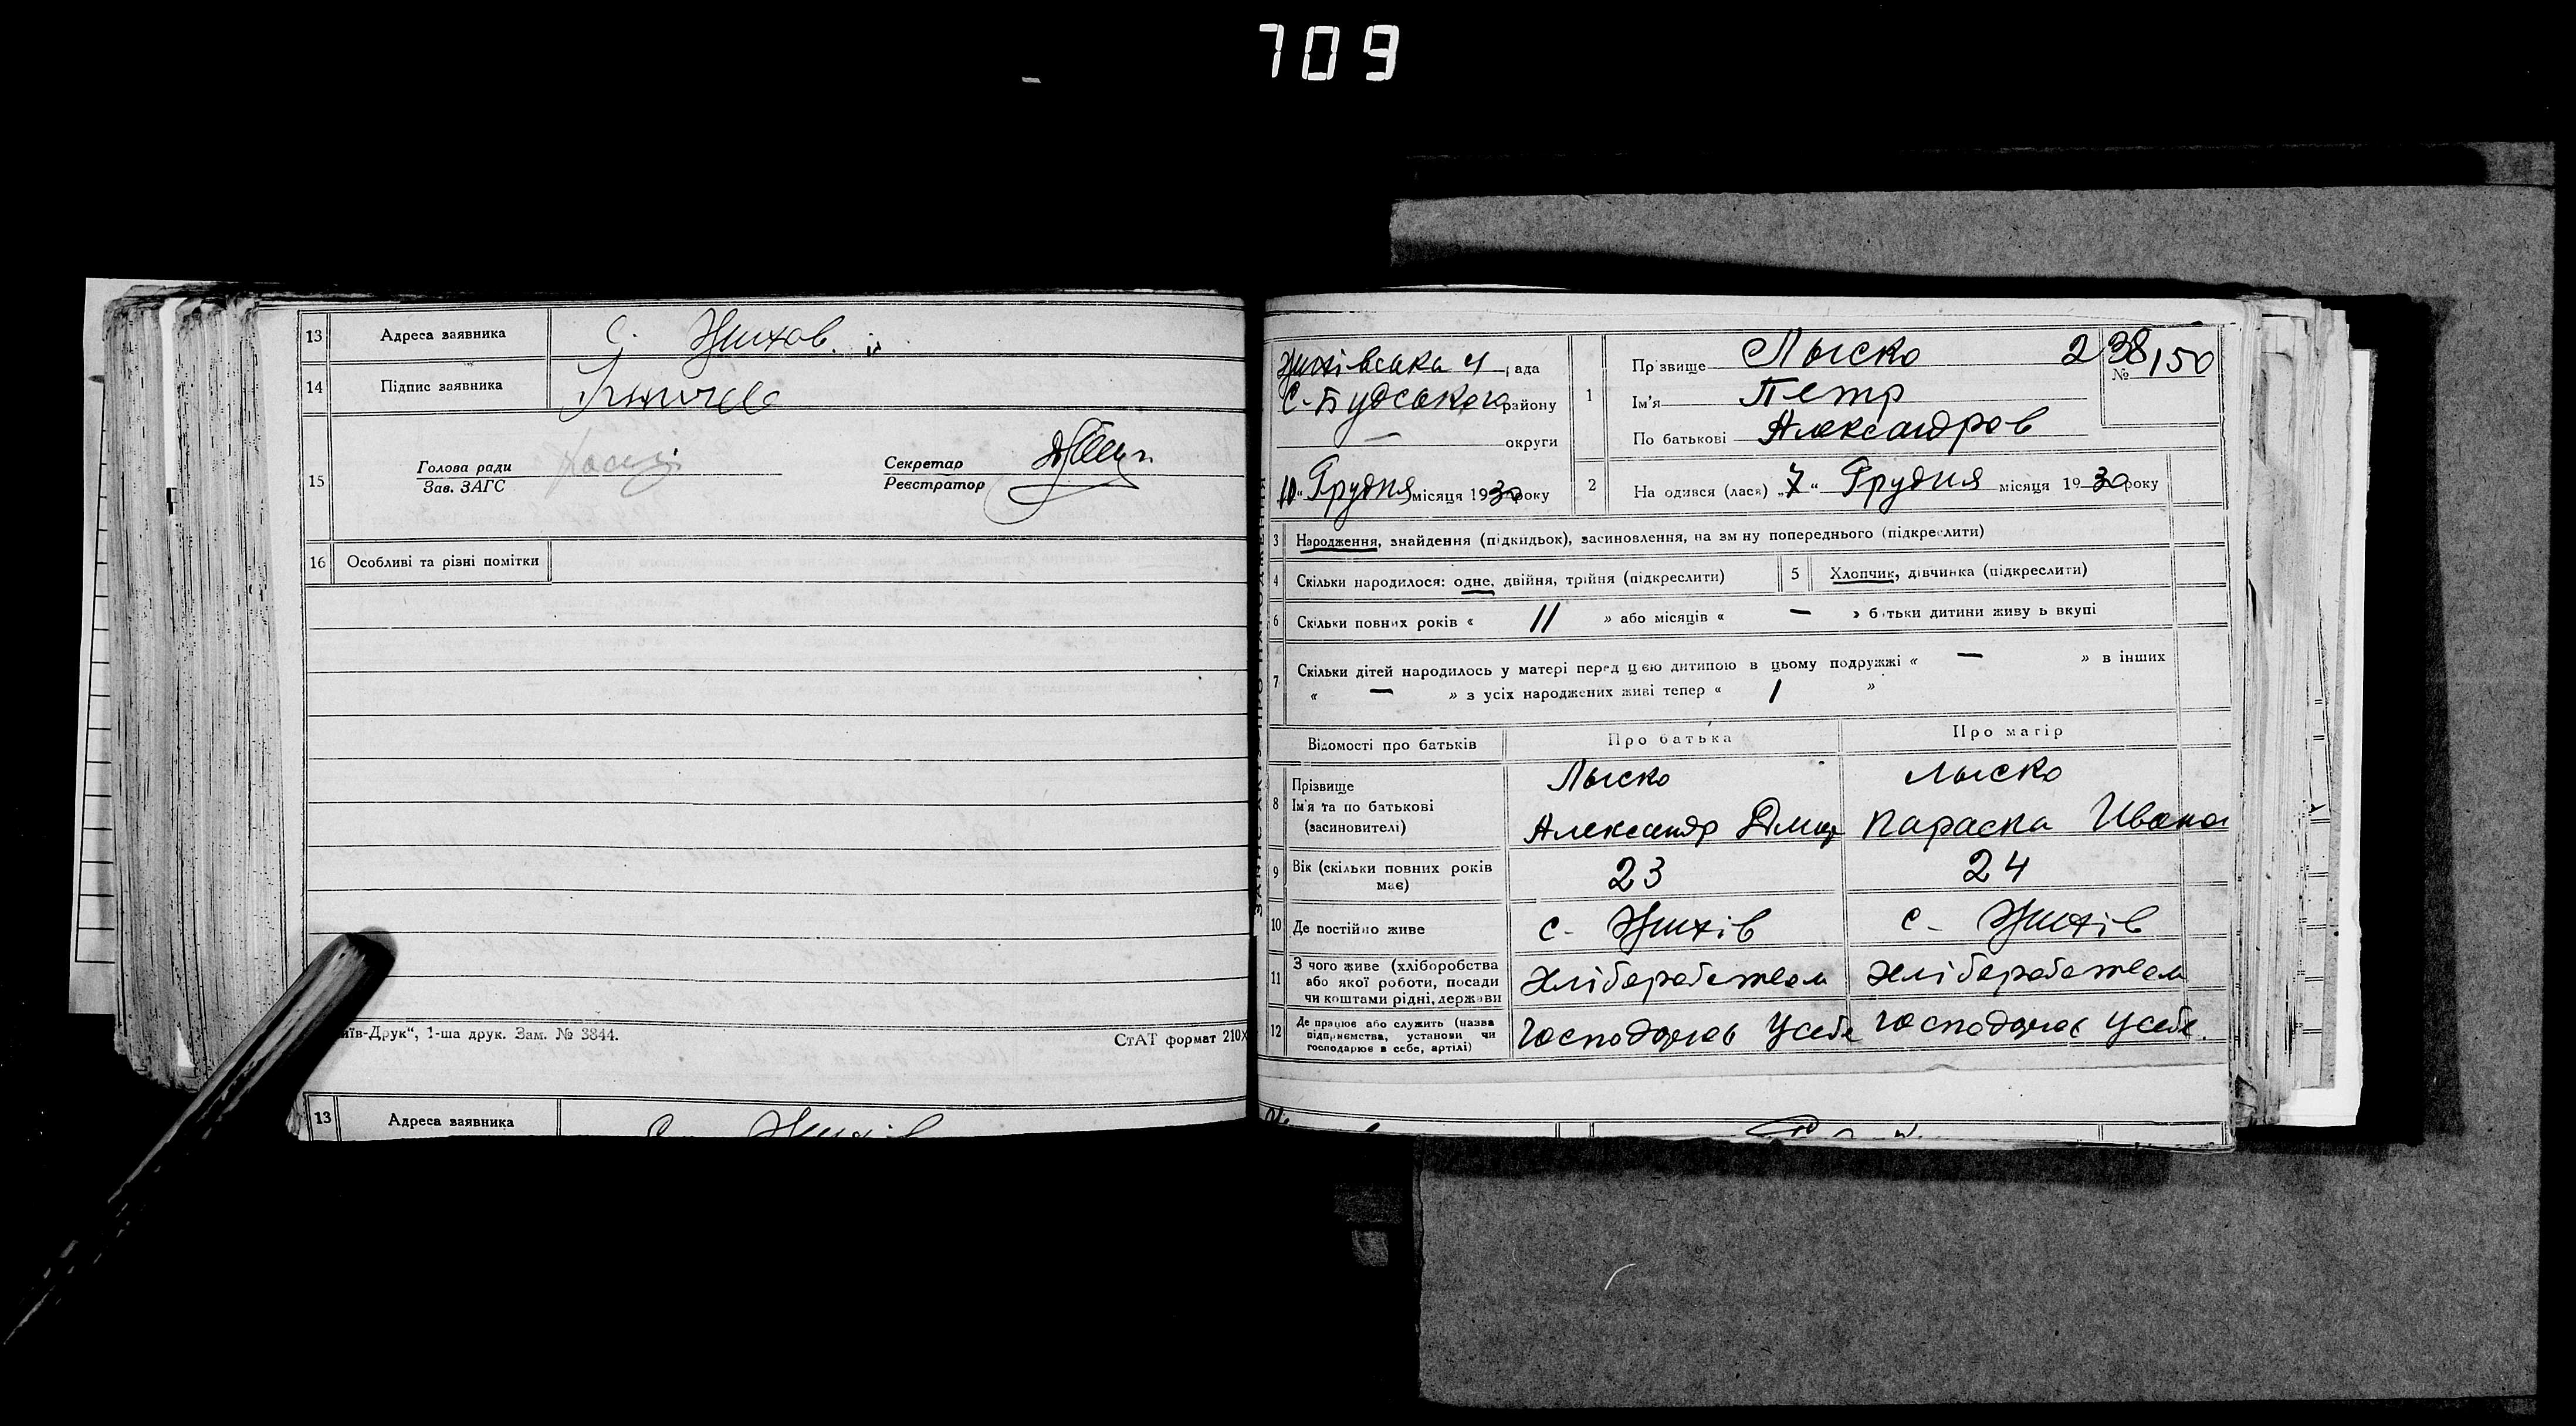 709
13 Адреса заявника с. Жихов.
14 Підпис заявника
15 Голова ради
Зав. ЗАГС
Секретар
Реєстратор
16 Особливі та різні помітки
иїв-Друк“, 1-ша друк. Зам. № 3844.
СтАТ формат 210X
13 Адреса заявника с. Жихів
Жихівська рада
С-Будського району
— округи
10 “ Грудня місяця 1930 року
1 Прізвище Лыско 238/50
№
Ім'я Петр
По батькові Александров
2 Народився (лася) „7“ Грудня місяця 1930 року
3 Народження, знайдення (підкидьок), засиновлення, на зміну попереднього (підкреслити)
4 Скільки народилося: одне, двійня, трійня (підкреслити)
5 Хлопчик, дівчинка (підкреслити)
6 Скільки повних років « 11 » або місяців « — » батьки дитини живуть вкупі
7 Скільки дітей народилось у матері перед цією дитиною в цьому подружжі « — » в інших
« — » з усіх народжених живі тепер « 1 »
Відомості про батьків Про батька Про матір
8 Прізвище Лыско Лыско
Ім'я та по батькові
(засиновителі) Александр Дмит Параска Ивано
9 Вік (скільки повних років
має) 23 24
10 Де постійно живе с- Жихів с- Жихів
11 З чого живе (хліборобства
або якої роботи, посади
чи коштами рідні, держави хліборобством хліборобством
12 Де працює або служить (назва
підприємства, установи чи
господарює в себе, артілі) господарює у себе господарює у себе.